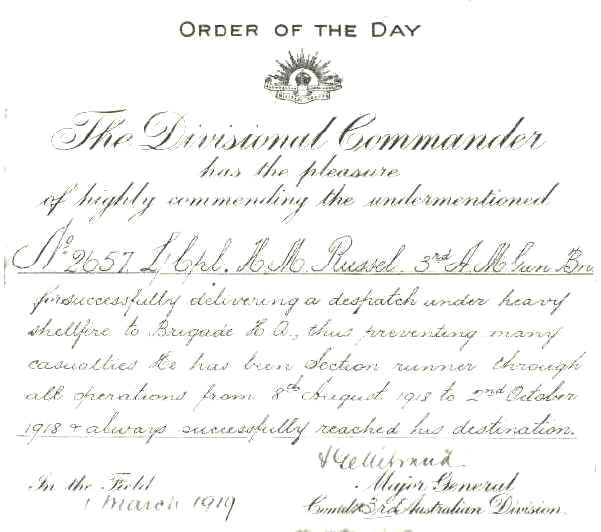 ORDER OF THE DAY
The Divisional Commander
has the pleasure
of highly commending the undermentioned
No. 2657. L/Cpl. H. M. Russel. 3rd A. M. Gun Bn
for successfully delivering a despatch under heavy
shellfire to Brigade H.Q., thus preventing many
casualties He has been Section runner through
all operations from 8th August 1918 to 2nd October
1918 & always successfully reached his destination.
In the Field Major General
1 March 1919 Comdg 3rd Australian Division.